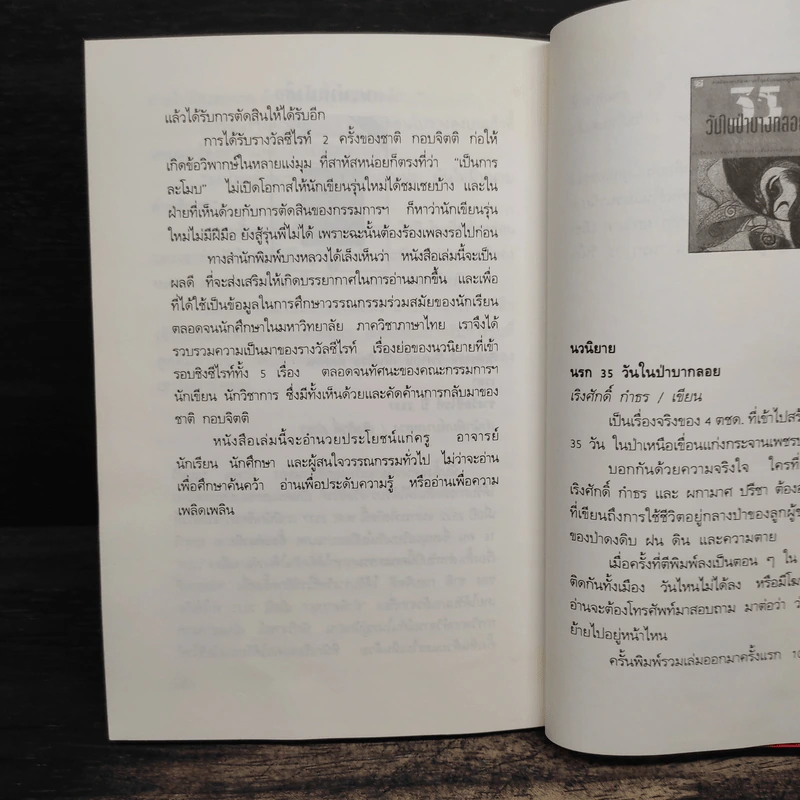 แล้วได้รับการตัดสินให้ได้รับอีก
การได้รับรางวัลซีไรท์ 2 ครั้งของชาติ กอบจิตติ ก่อให้
เกิดข้อวิพากษ์ในหลายแง่มุม ที่สาหัสหน่อยก็ตรงที่ว่า "เป็นการ
ละโมบ" ไม่เปิดโอกาสให้นักเขียนรุ่นใหม่ได้ชมเชยบ้าง และใน
ฝ่ายที่เห็นด้วยกับการตัดสินของกรรมการฯ ก็หาว่านักเขียนรุ่น
ใหม่ไม่มีฝีมือ ยังสู้รุ่นพี่ไม่ได้ เพราะฉะนั้นต้องร้องเพลงรอไปก่อน
ทางสำนักพิมพ์บางหลวงได้เล็งเห็นว่า หนังสือเล่มนี้จะเป็น
ผลดี ที่จะส่งเสริมให้เกิดบรรยากาศในการอ่านมากขึ้น และเพื่อ
ที่ได้ใช้เป็นข้อมูลในการศึกษาวรรณกรรมร่วมสมัยของนักเรียน
ตลอดจนนักศึกษาในมหาวิทยาลัย ภาควิชาภาษาไทย เราจึงได้
รวบรวมความเป็นมาของรางวัลซีไรท์ เรื่องย่อของนวนิยายที่เข้า
รอบชิงซีไรท์ทั้ง 5 เรื่อง ตลอดจนทัศนะของคณะกรรมการฯ
นักเขียน นักวิชาการ ซึ่งมีทั้งเห็นด้วยและคัดค้านการกลับมาของ
ชาติ กอบจิตติ
หนังสือเล่มนี้จะอำนวยประโยชน์แก่ครู อาจารย์
นักเรียน นักศึกษา และผู้สนใจวรรณกรรมทั่วไป ไม่ว่าจะอ่าน
เพื่อศึกษาค้นคว้า อ่านเพื่อประดับความรู้ หรืออ่านเพื่อความ
เพลิดเพลิน
35
วันในป่าบางกลอย
นวนิยาย
นรก 35 วันในป่าบากลอย
เริงศักดิ์ กำธร / เขียน
เป็นเรื่องจริงของ 4 ตชด. ที่เข้าไปสร้
35 วัน ในป่าเหนือเขื่อนแก่งกระจานเพชรบ
บอกกันด้วยความจริงใจ ใครที่
เริงศักดิ์ กำธร และ ผกามาศ ปรีชา ต้อง
ที่เขียนถึงการใช้ชีวิตอยู่กลางป่าของลูกผู้ช
ของป่าดงดิบ ฝน ดิน และความตาย
เมื่อครั้งที่ตีพิมพ์ลงเป็นตอน ๆ ใน
ติดกันทั้งเมือง วันไหนไม่ได้ลง หรือมีโฆ
อ่านจะต้องโทรศัพท์มาสอบถาม มาต่อว่า
ย้ายไปอยู่หน้าไหน
ครั้นพิมพ์รวมเล่มออกมาครั้งแรก 10